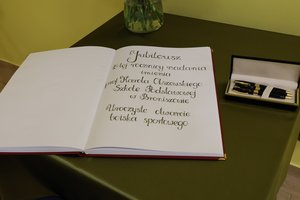 Jubileusz
rocznicy nadania
imienia
prof. Karola Olszewskiego
Szkole Podstawowej
w Broniszowie
Uroczyste otwarcie
boiska sportowego